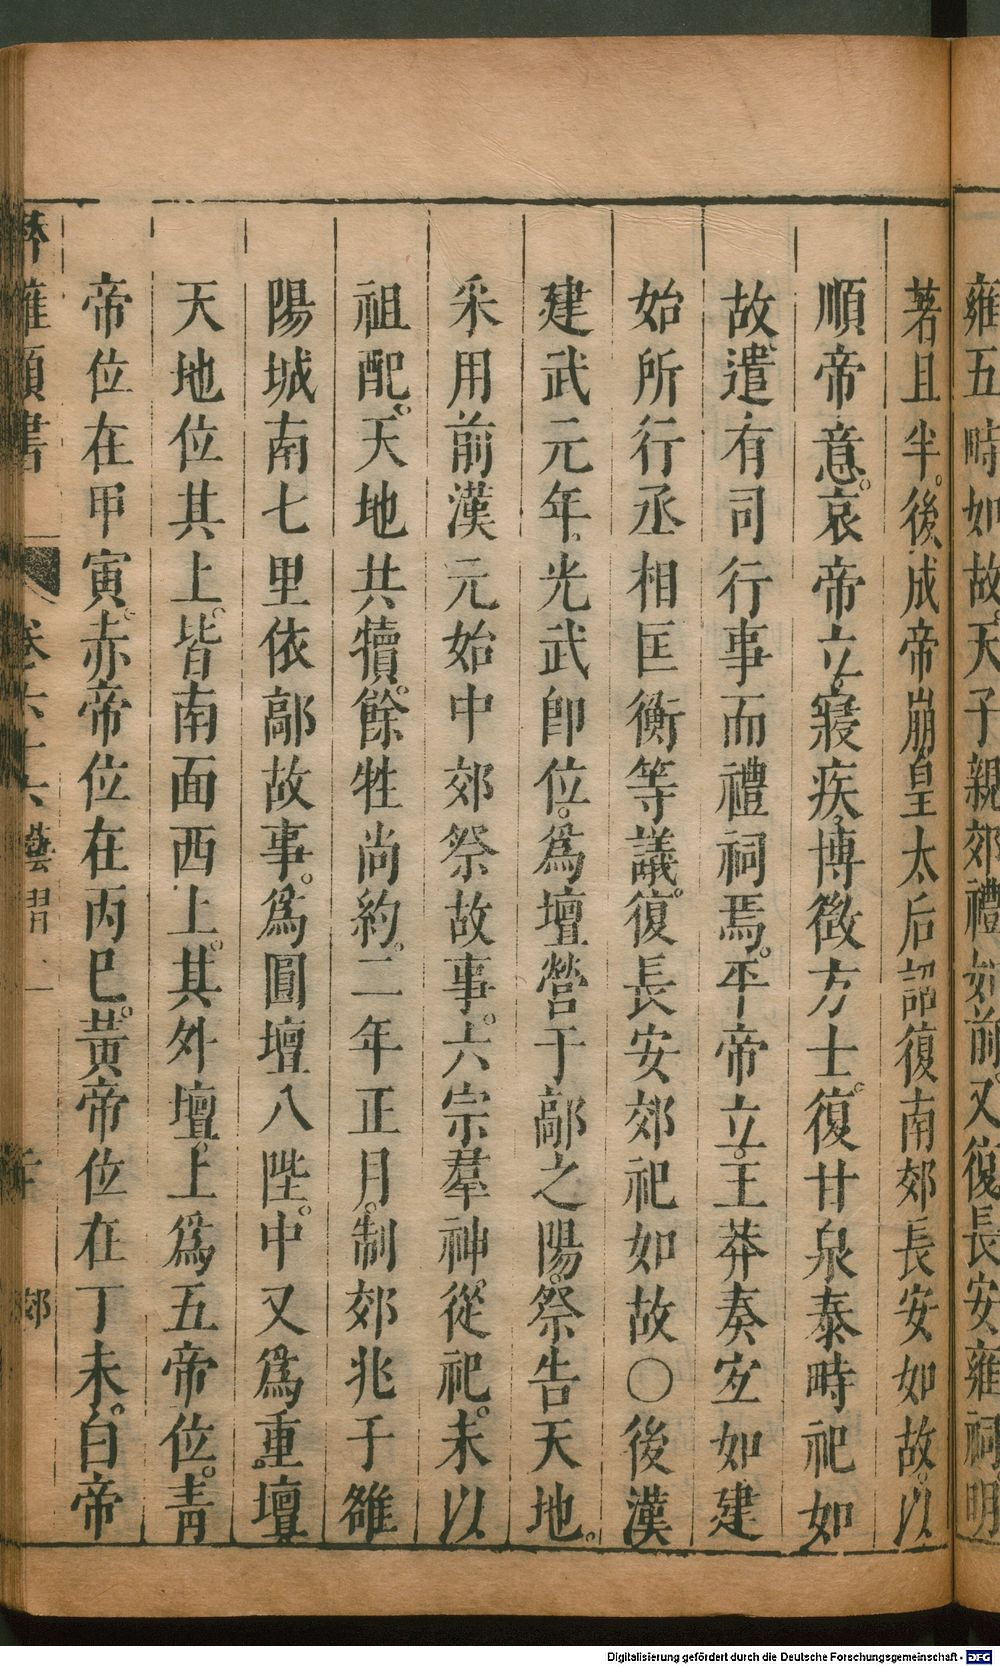 雍五畤如故天子親郊禮如前又復長安雍祠明
著且半後成帝崩皇太后詔復南郊長安如故以
順帝意哀帝立寢疾博徵方士復甘泉泰畤祀如
故遣有司行事而禮祠焉平帝立王莽奏宜如建
始所行丞相匡衡等議復長安郊祀如故〇後漢
建武元年光武卽位爲壇營于鄗之陽祭告天地
采用前漢元始中郊祭故事六宗羣神從祀未以
祖配天地共犢餘牲尚約二年正月制郊兆于雒
陽城南七里依鄗故事爲圓壇八陛中又爲重壇
天地位其上皆南面西上其外壇上爲五帝位青
帝位在甲寅赤帝位在丙巳黃帝位在丁未白帝
類書 卷六十六 郊
Digitalisierung gefördert durch die Deutsche Forschungsgemeinschaft - DFG